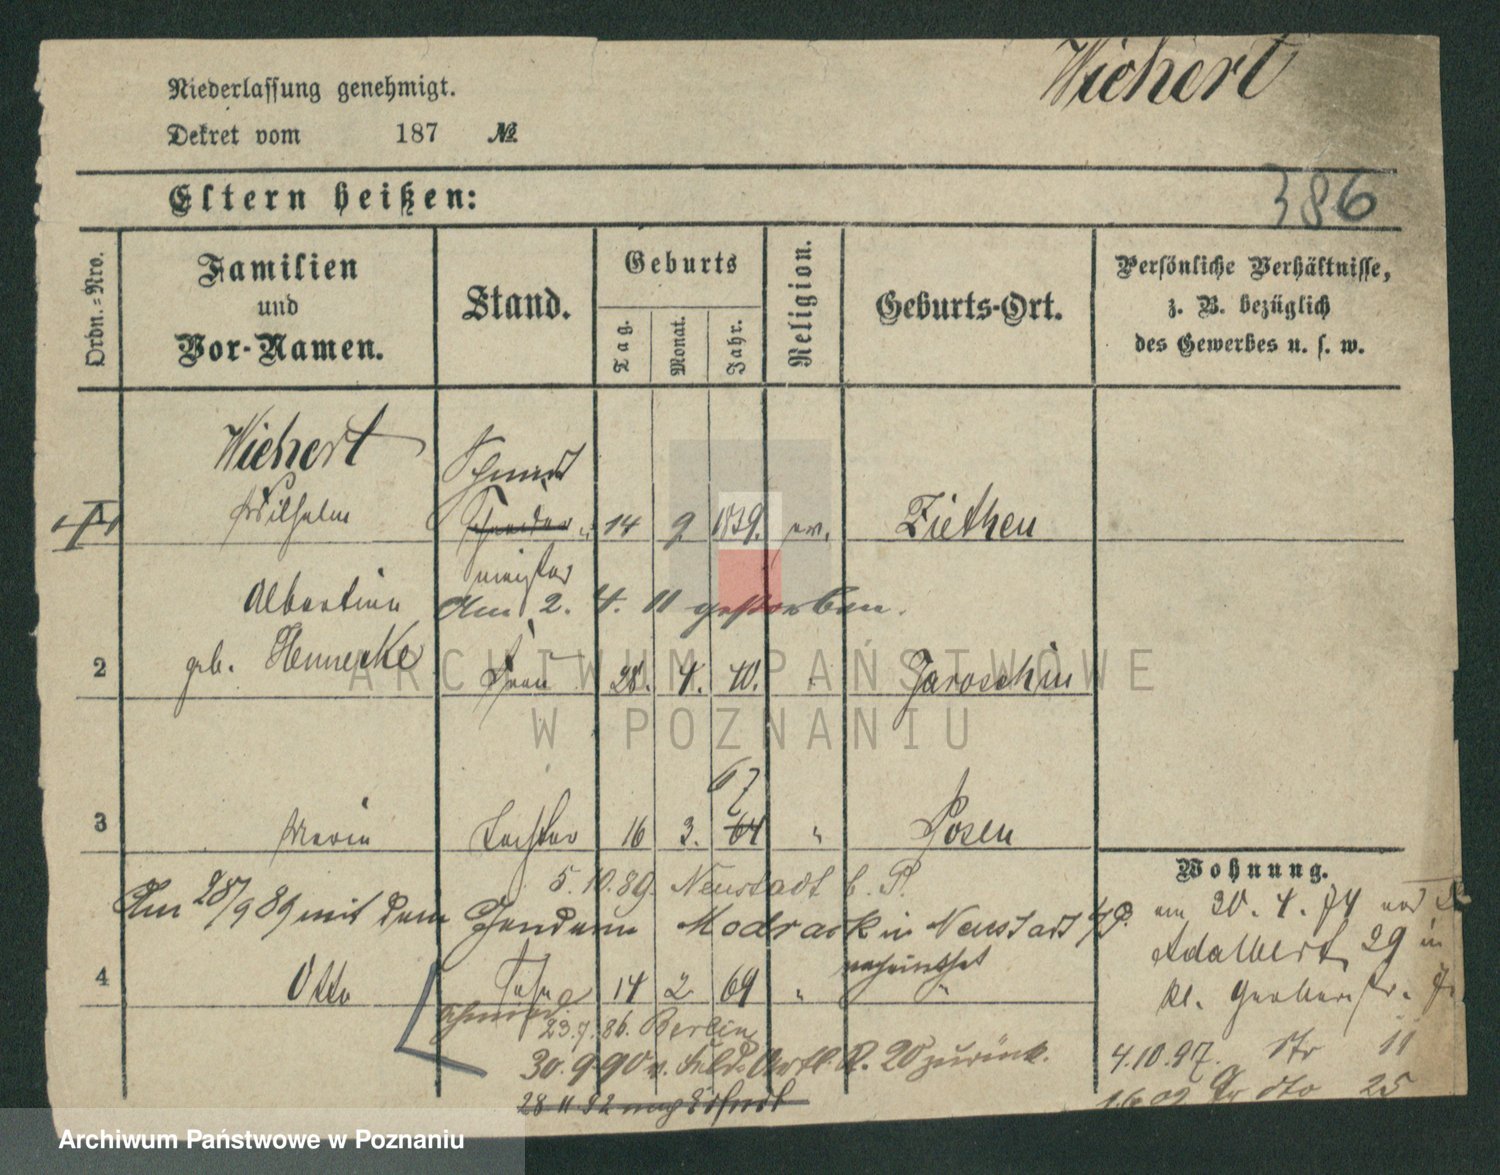 Wichert
Niederlassung genehmigt.
Dekret vom 187 №
386
Eltern heißen:
Ordn.-Nro.
Familien
und
Vor-Namen.
Stand.
Geburts
Tag.
Monat.
Jahr.
Religion.
Geburts-Ort.
Persönliche Verhältnisse,
z. B. bezüglich
des Gewerbes u. s. w.
Wichert Schmidt
1 Wilhelm 14 9 1839. ev. Ziethen
meister
Albertine Am 2. 4. 11 gestorben.
2 geb. Hennecke Frau 28. 4. 40. Jaroschin
67
3 Maria Tochter 16 3. 64 " Posen
Wohnung.
5. 10. 89. Neustadt b. P.
Am 28/9 89 mit dem Gendarm Modrack in Neustadt b/P.
verheirathet
4 Otto Sohn 14 2 69 " "
Schmied 23.7.86. Berlin
30.9.90 v. Feld Artl. R. 20 zurück.
28 11 92
am 20. 4. 74
Adalbert 29 in
kl. Gerberstr.
4.10.97. 11
1.6.02 dto 25
ARCHIWUM PAŃSTWOWE
W POZNANIU
Archiwum Państwowe w Poznaniu